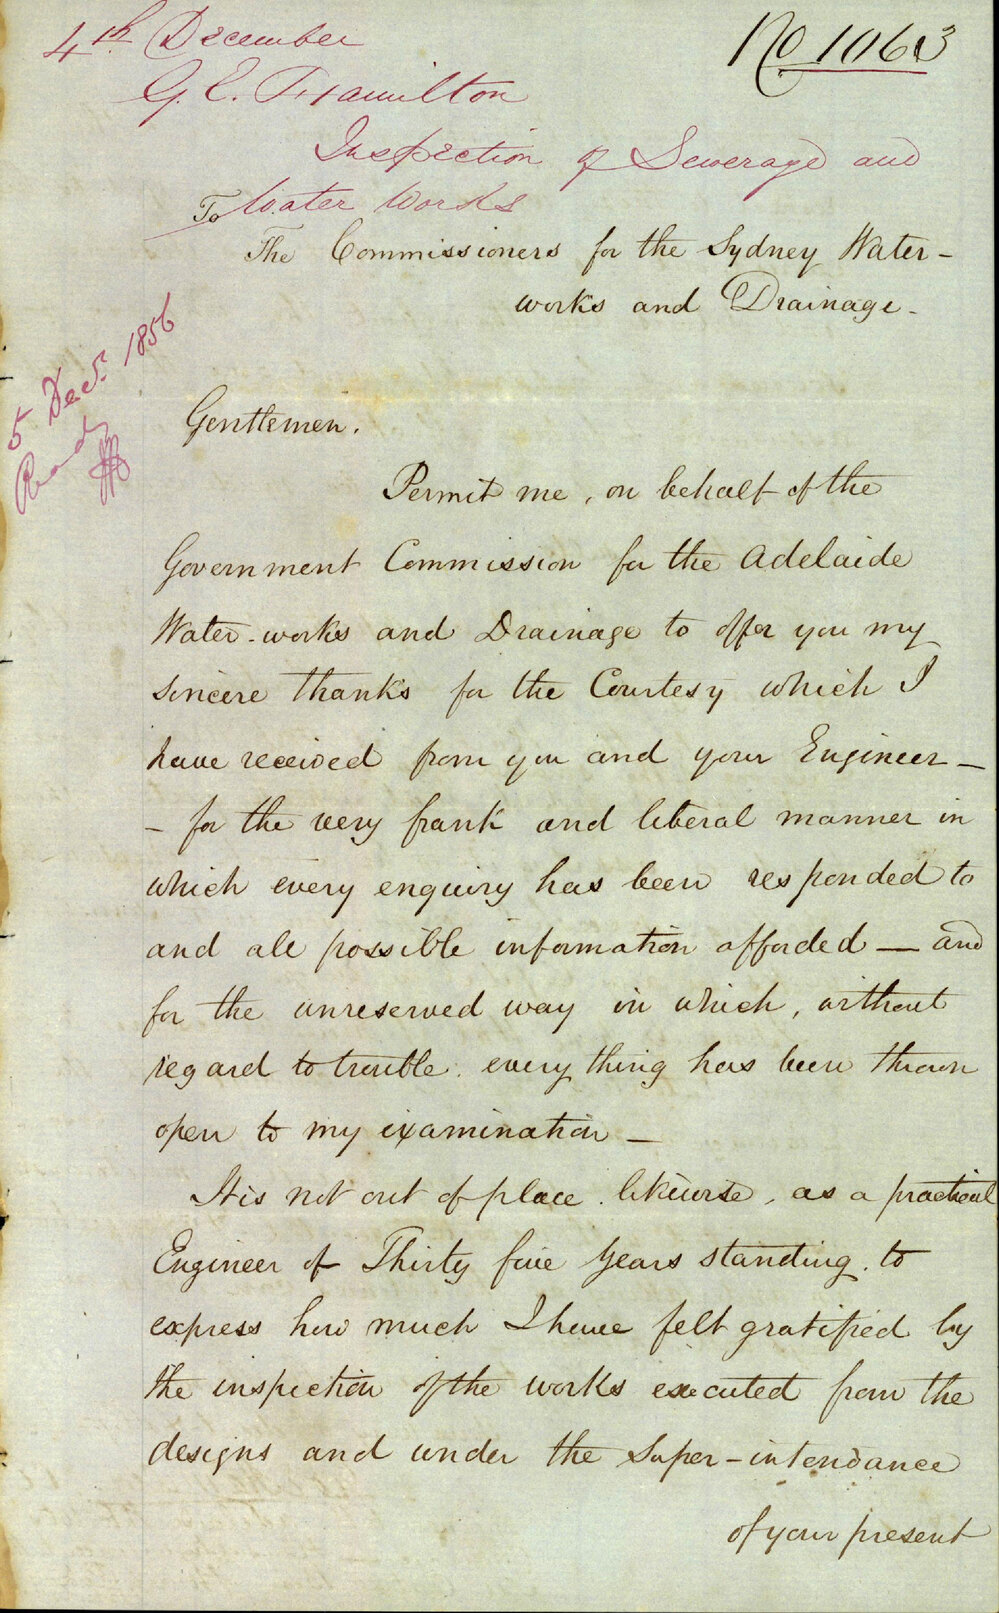 4th December
No 1063
G. E. Hamilton
Inspection of Sewerage and
Water Works
To
The Commissioners for the Sydney Water-
works and Drainage-
5 Decr. 1856
Read
Gentlemen.
Permit me, on behalf of the
Government Commission for the Adelaide
Water-works and Drainage to offer you my
sincere thanks for the Courtesy which I
have received from you and your Engineer —
— for the very frank and liberal manner in
which every enquiry has been responded to
and all possible information afforded — and
for the unreserved way in which, without
regard to trouble. every thing has been thrown
open to my examination —
It is not out of place. likewise, as a practical
Engineer of Thirty five Years standing. to
express how much I have felt gratified by
the inspection of the works executed from the
designs and under the Super-intendance
of your present